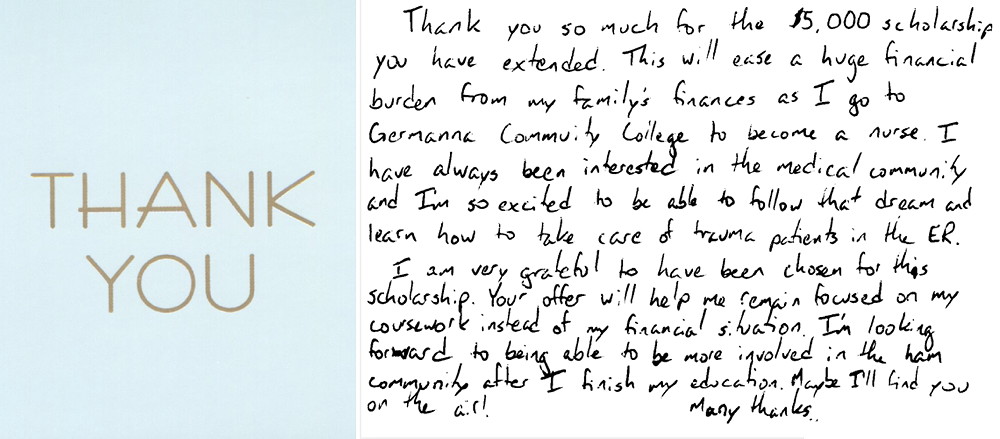 THANK
YOU
Thank you so much for the $5,000 scholarship
you have extended. This will ease a huge financial
burden from my family's finances as I go to
Germanna Commuity College to become a nurse. I
have always been interested in the medical community
and I'm so excited to be able to follow that dream and
learn how to take care of trauma patients in the ER.
I am very grateful to have been chosen for this
scholarship. Your offer will help me remain focused on my
coursework instead of my financial situation. I'm looking
forward to being able to be more involved in the ham
community after I finish my education. Maybe I'll find you
on the air!
Many thanks..